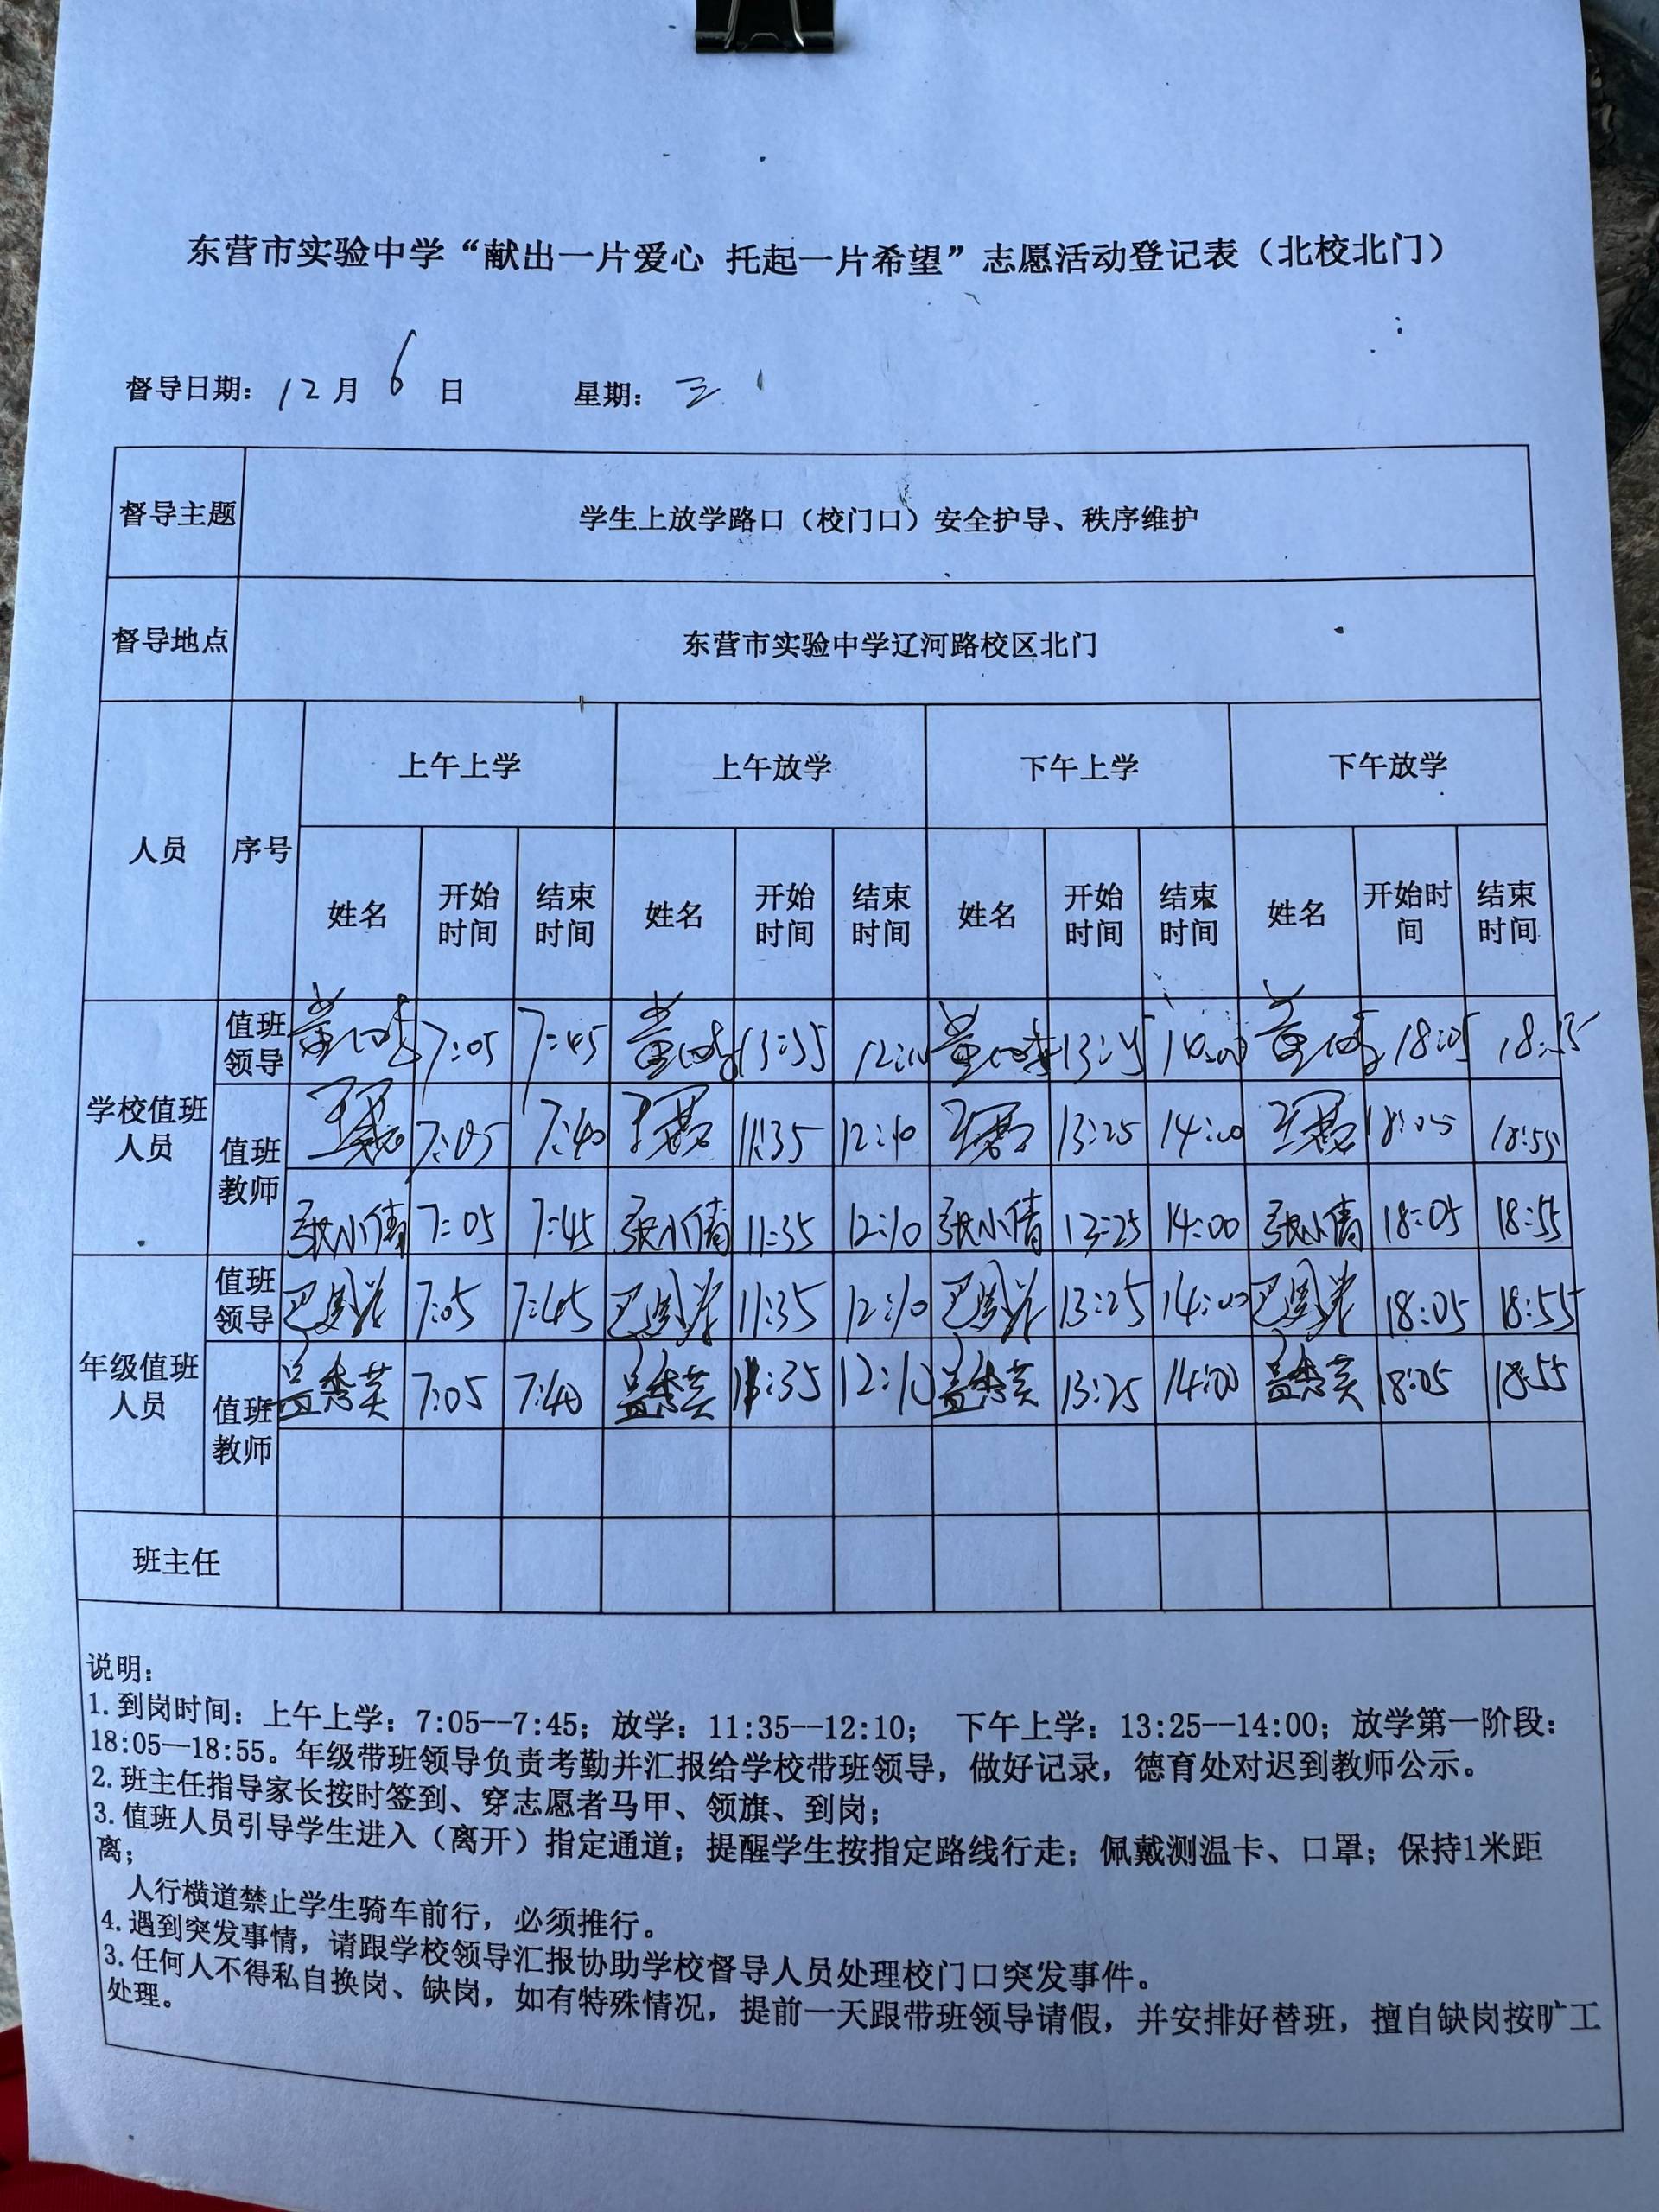 东营市实验中学“献出一片爱心 托起一片希望”志愿活动登记表（北校北门）
督导日期：12月6日 星期：三
督导主题 学生上放学路口（校门口）安全护导、秩序维护
督导地点 东营市实验中学辽河路校区北门
人员 序号 上午上学 上午放学 下午上学 下午放学
姓名 开始时间 结束时间 姓名 开始时间 结束时间 姓名 开始时间 结束时间 姓名 开始时间 结束时间
学校值班人员 值班领导 7:05 7:45 13:35 18:05 18:55
值班教师 7:05 7:40 11:35 12:10 13:25 14:00 18:05 18:55
张小倩 7:05 7:45 张小倩 11:35 12:10 张小倩 13:25 14:00 张小倩 18:05 18:55
年级值班人员 值班领导 7:05 7:45 11:35 12:10 13:25 14:00 18:05 18:55
值班教师 盖秀英 7:05 7:40 盖秀英 11:35 12:10 盖秀英 13:25 14:00 盖秀英 18:05 18:55
班主任
说明：
1.到岗时间：上午上学：7:05--7:45；放学：11:35--12:10； 下午上学：13:25--14:00；放学第一阶段：
18:05—18:55。年级带班领导负责考勤并汇报给学校带班领导，做好记录，德育处对迟到教师公示。
2.班主任指导家长按时签到、穿志愿者马甲、领旗、到岗；
3.值班人员引导学生进入（离开）指定通道；提醒学生按指定路线行走；佩戴测温卡、口罩；保持1米距
离；
人行横道禁止学生骑车前行，必须推行。
4.遇到突发事情，请跟学校领导汇报协助学校督导人员处理校门口突发事件。
3.任何人不得私自换岗、缺岗，如有特殊情况，提前一天跟带班领导请假，并安排好替班，擅自缺岗按旷工
处理。